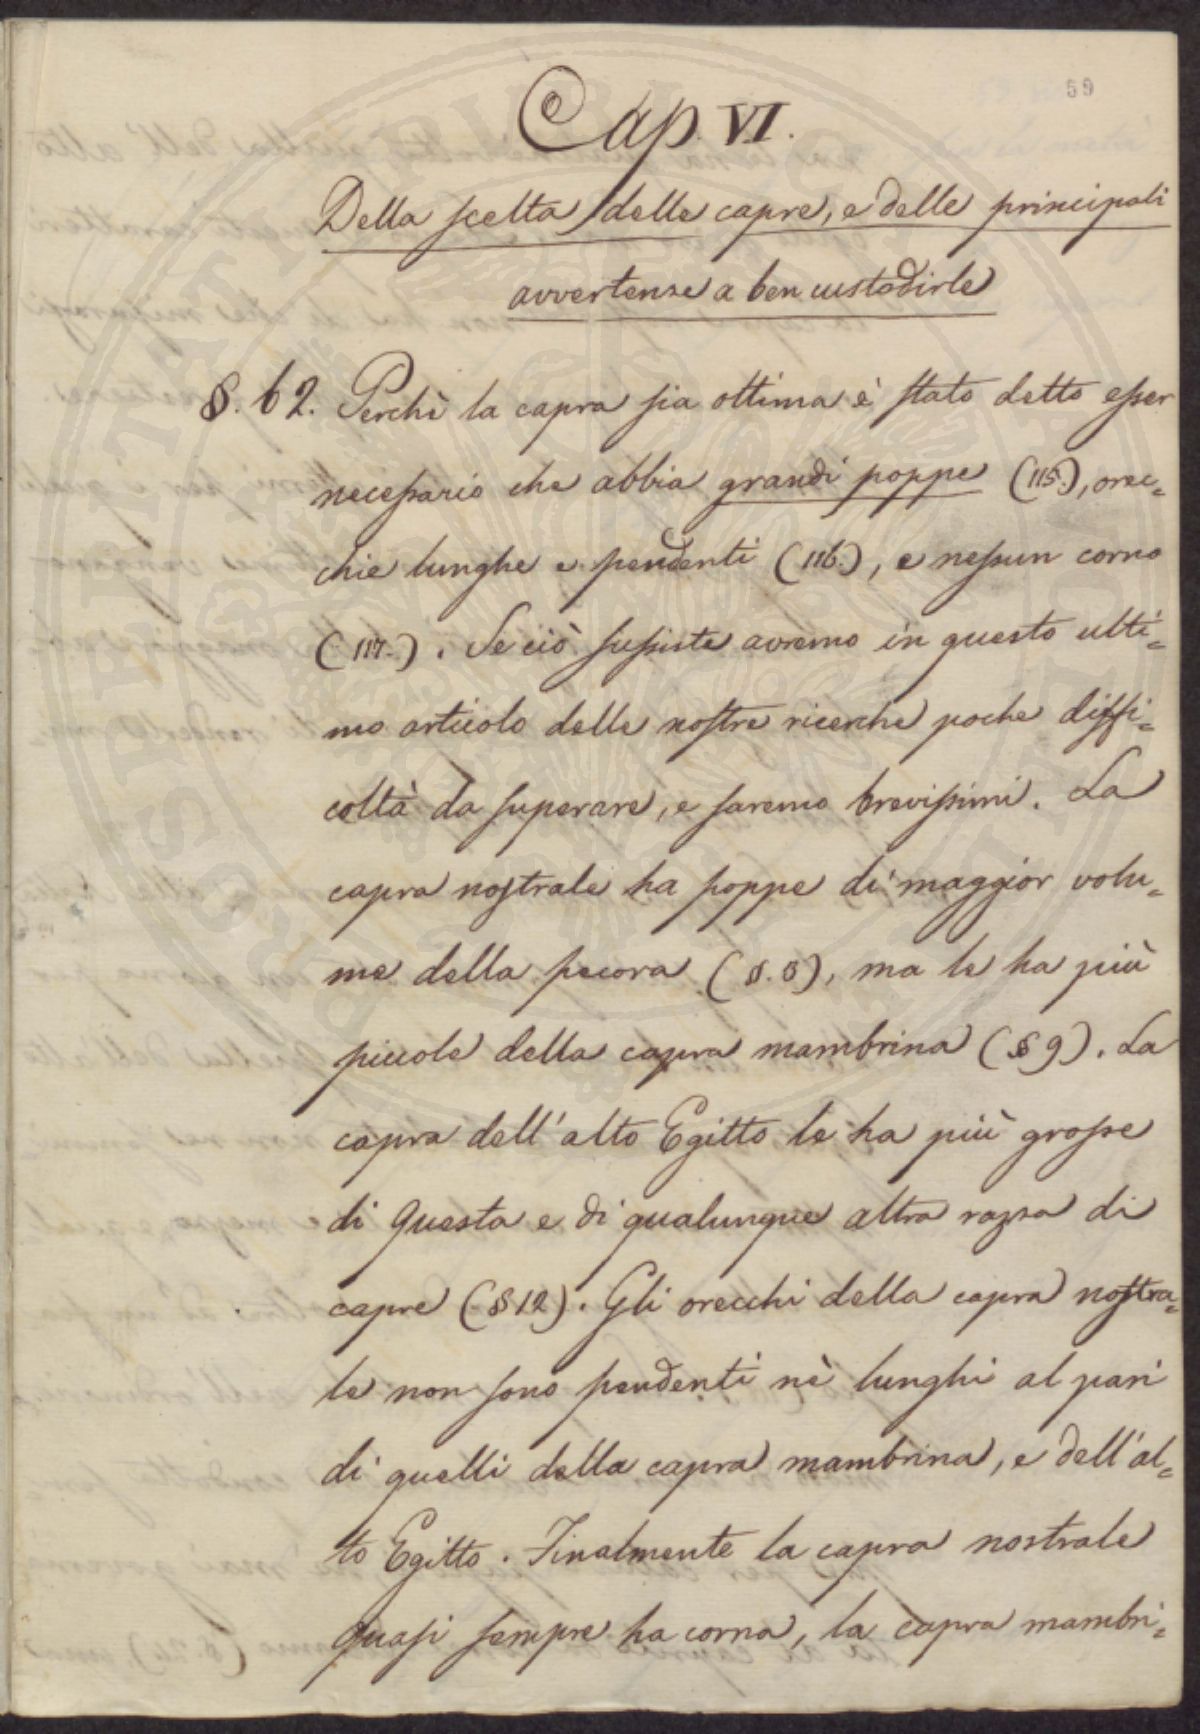 59
Cap. VI.
Della scelta delle capre, e delle principali
avvertenze a ben custodirle
§. 62. Perchè la capra sia ottima è stato detto esser
necessario che abbia grandi poppe (115.), orec=
chie lunghe e pendenti (116.), e nessun corno
(117.). Se ciò sussiste avremo in questo ulti=
mo articolo delle nostre ricerche poche diffi=
coltà da superare, e saremo brevissimi. La
capra nostrale ha poppe di maggior volu=
me della pecora (§. 8), ma le ha più
piccole della capra mambrina (§ 9). La
capra dell'alto Egitto le ha più grosse
di questa e di qualunque altra razza di
capre (§ 12). Gli orecchi della capra nostra=
le non sono pendenti nè lunghi al pari
di quelli della capra mambrina, e dell'al=
to Egitto. Finalmente la capra nostrale
quasi sempre ha corna, la capra mambri=